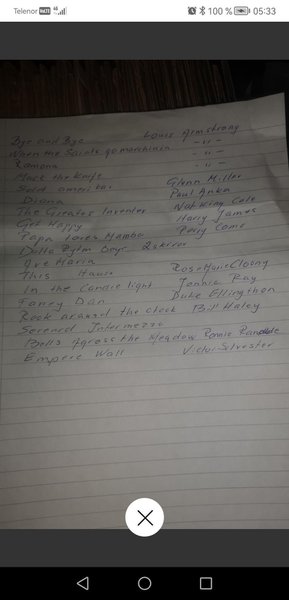 Telenor 100 % 05:33
Bye and Bye Louis Armstrong
When the Saints go marchin in - " -
Ramona - " -
Mack the Knife
Sold amerika. Glenn Miller
Diana Paul Anka
The Greates Inventer Nat King Cole
Get Happy Harry James
Papa Loves Mambo Perry Como
Delta Rytm Boys 2 skivor
Ave Maria
This House Rose Marie Cloony
In the Candle light Jonnie Ray
Fancy Dan Duke Ellington
Rock around the clock Bill Haley
Serenad Intermezzo
Bells Across the Meadow Ronnie Ranalde
Empere Wall Victor Silvester